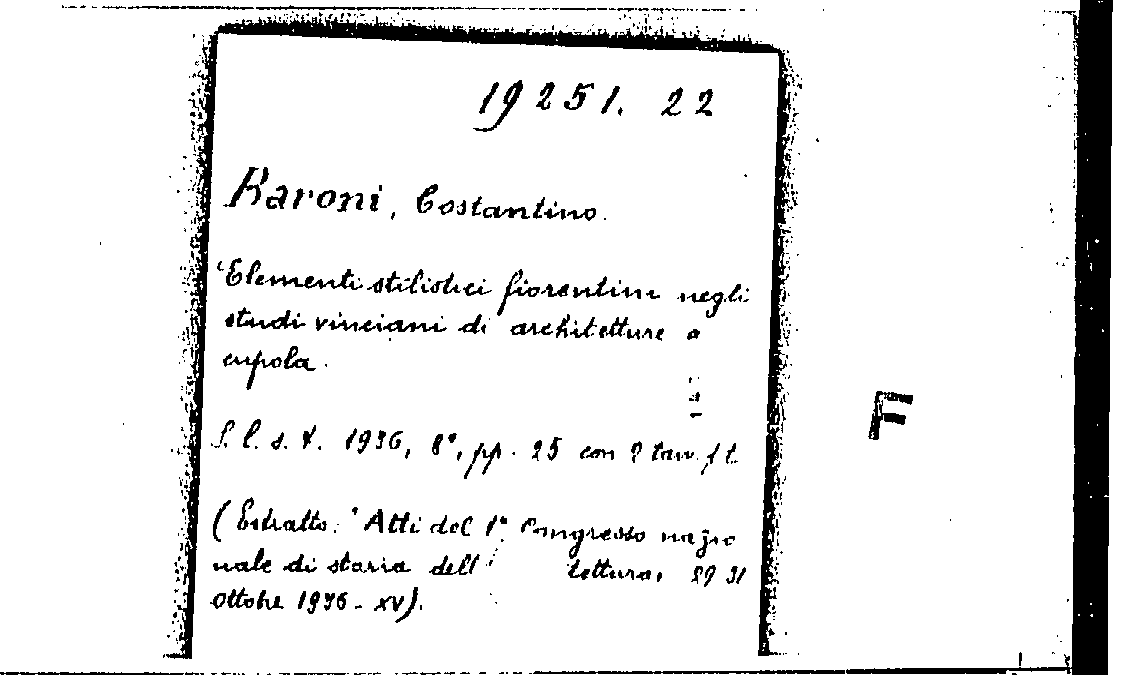 19251. 22
Baroni, Costantino.
Elementi stilistici fiorentini negli
studi vinciani di architetture a
cupola.
S. l. s. t. 1936, 8°, pp. 25 con 2 tav. f t.
F
(Estratto: "Atti del 1° Congresso nazio
nale di storia dell' tettura, 29 31
Ottobre 1936 - XV).